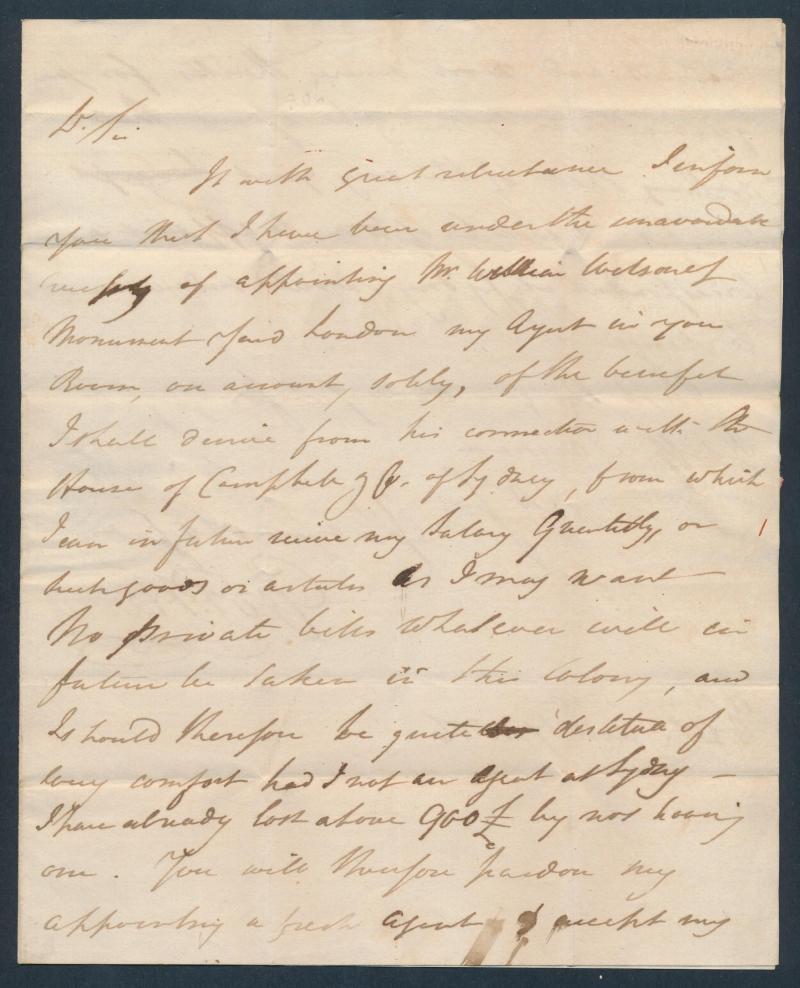 Dr. Sir
It with great reluctance I inform
you that I have been under the unavoidable
necessity of appointing Mr. William Wilson of
Monument Yard London my Agent in your
Room, on account, solely, of the benefit
I shall derive from his connection with the
House of Campbell & Co. of Sydney, from which
I can in future receive my Salary Quarterly, or
such goods or articles as I may want
No private bills whatever will in
future be taken in this Colony, and
I should therefore be quite destitute of
every comfort had I not an agent at Sydney –
I have already lost above 900£ by not having
one. You will therefore pardon my
appointing a fresh agent & accept my